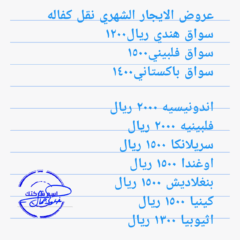 عروض الايجار الشهري نقل كفاله
سواق هندي ريال١٢٠٠
سواق فلبيني١٥٠٠
سواق باكستاني١٤٠٠
اندونيسيه ٢٠٠٠ ريال
فلبينيه ٢٠٠٠ ريال
سريلانكا ١٥٠٠ ريال
اوغندا ١٥٠٠ ريال
بنغلاديش ١٥٠٠ ريال
كينيا ١٥٠٠ ريال
اثيوبيا ١٣٠٠ ريال